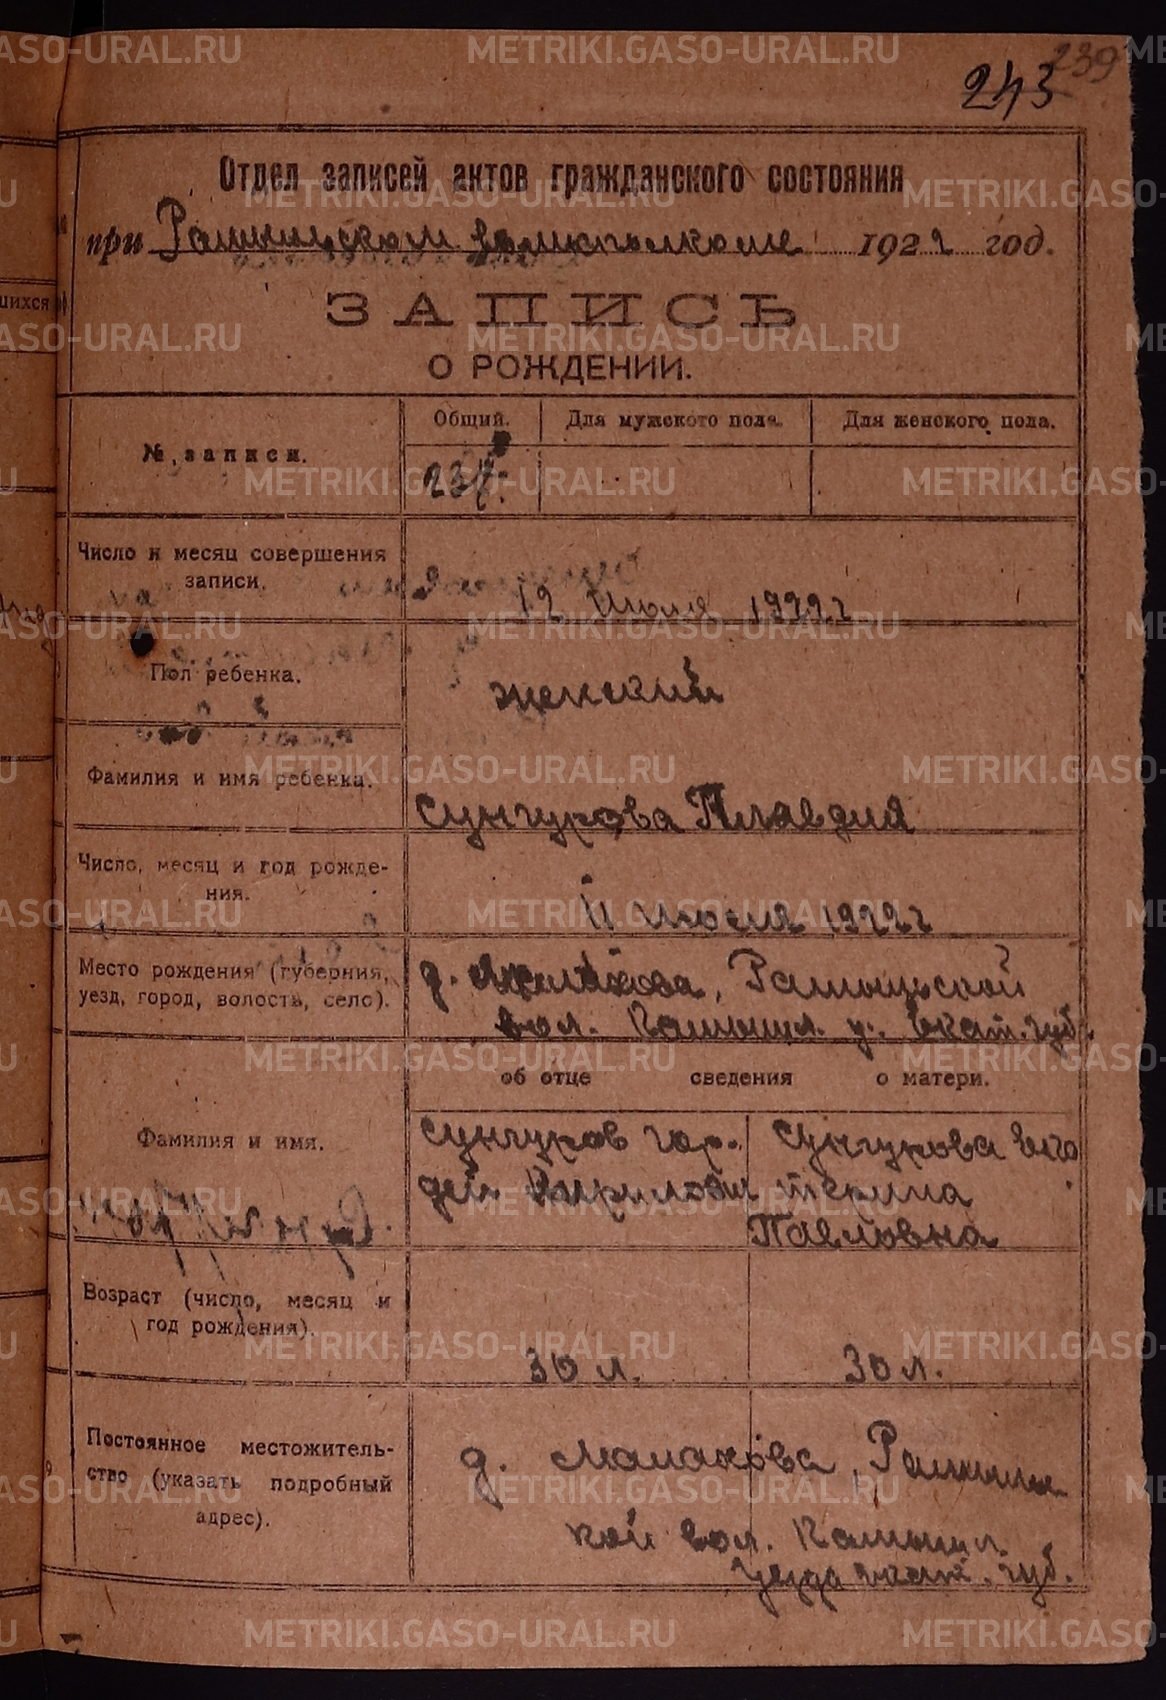 239
243
Отдел записей актов гражданского состояния
при волисполкоме 1922 год.
ЗАПИСЬ
О РОЖДЕНИИ.
№ записи.
Общий.
Для мужского пола.
Для женского пола.
237.
Число и месяц совершения
записи.
12 Июля 1922 г
Пол ребенка.
женский
Фамилия и имя ребенка.
Сунгурова Клавдия
Число, месяц и год рожде-
ния.
11 июля 1922 г
Место рождения (губерния,
уезд, город, волость, село).
д.
вол. Камышл. у. Екат. губ.
об отце сведения о матери.
Фамилия и имя.
Сунгуров Гор-
дей Кирилович
Сунгурова Ека
терина
Павловна
Возраст (число, месяц и
год рождения).
30 л.
30 л.
Постоянное местожитель-
ство (указать подробный
адрес).
д. Малакова,
кой вол. Камышл.
уезда Екат. губ.
шихся
METRIKI.GASO-URAL.RU